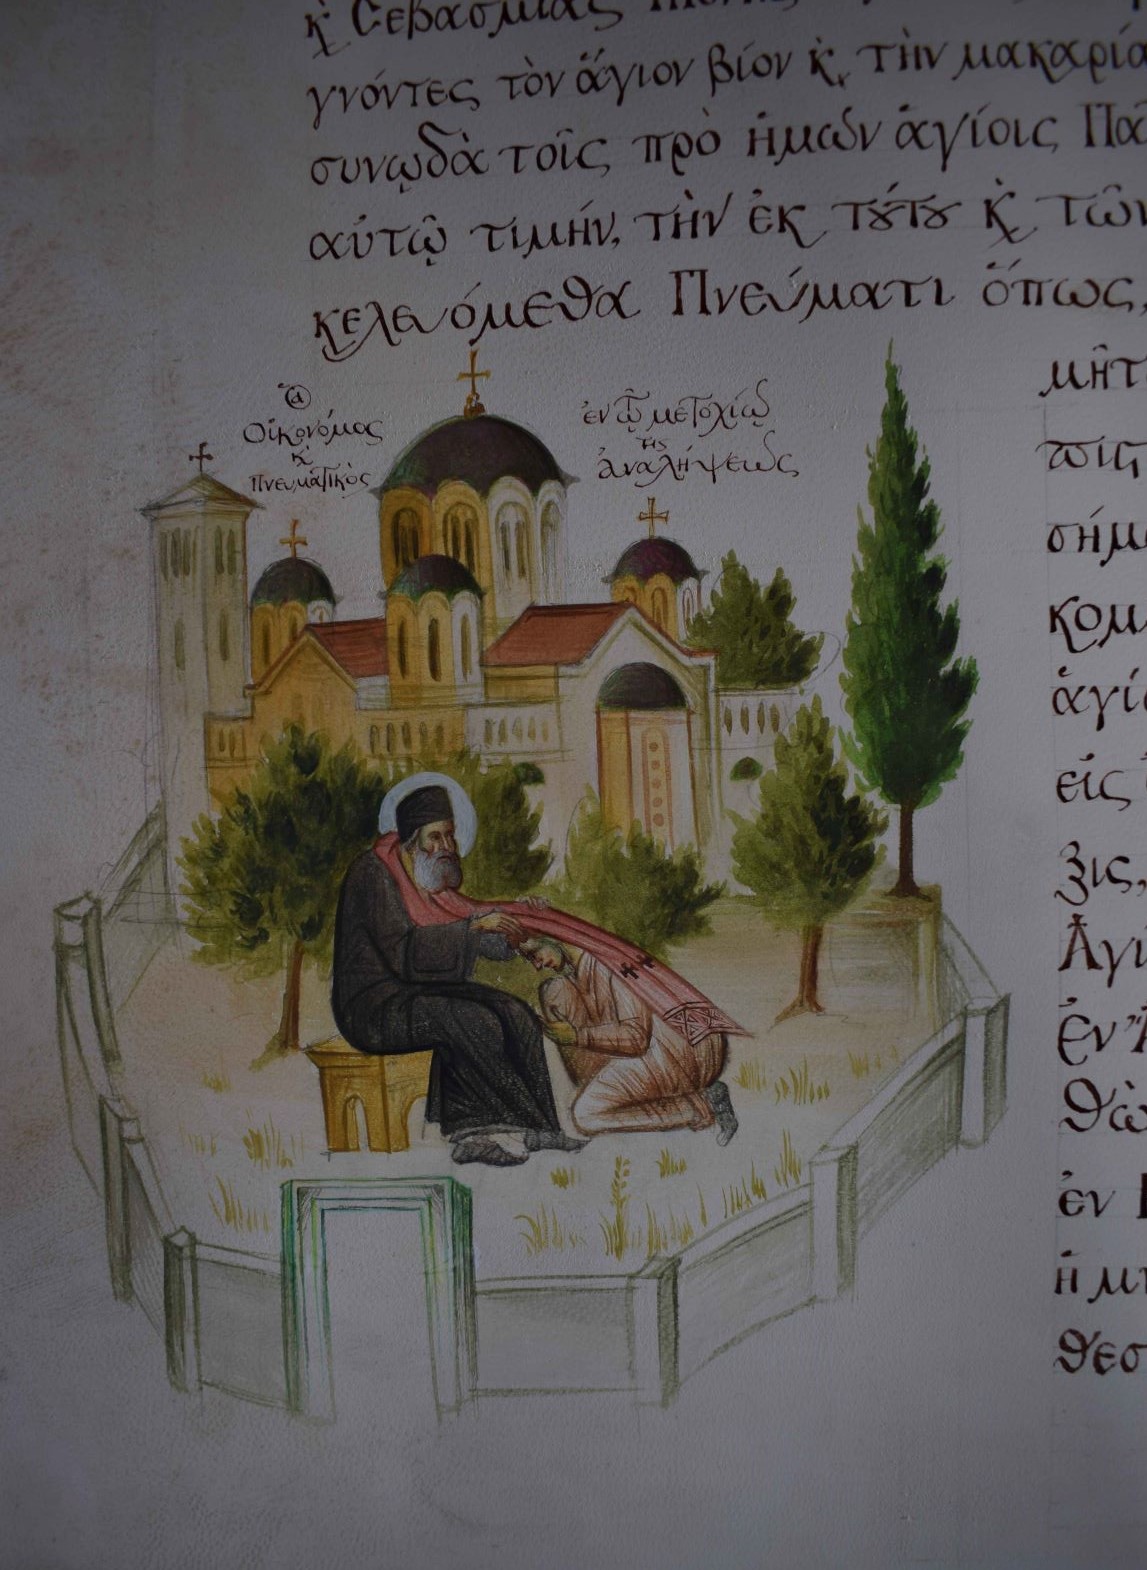 κ̀ Σεβασμίας
γνόντες τὸν ἅγιον βίον κ̀ τὴν μακαρία
συνῳδὰ τοῖς πρὸ ἡμῶν ἁγίοις Πα
αὐτῷ τιμήν, τὴν ἐκ τȣ́τȣ κ̀ τῶν
κελευόμεθα Πνεύματι ὅπως,
Ὁ
Οἰκονόμος
κ̀
Πνευματικὸς
ἐν τῷ μετοχίῳ
τῆς
ἀναλήψεως
μήτ
πις
σήμ
κομ
ἁγί
εἰς
ξις,
Ἁγί
ἐν
θὼ
ἐν
ἡ μ
θεσ